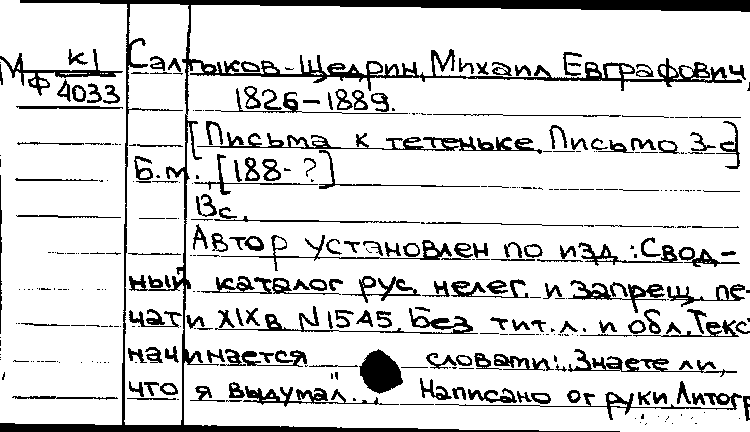 МФ К1/4033
Салтыков-Щедрин, Михаил Евграфович,
1826-1889.
[Письма к тетеньке. Письмо 3-е]
Б.м., [188-?]
13с.
Автор установлен по изд.: Свод-
ный каталог рус. нелег. и запрещ. пе-
чати XIX в. N1545. Без тит. л. и обл. Текс
начинается словами: "Знаете ли,
что я выдумал"... Написано от руки. Литогр